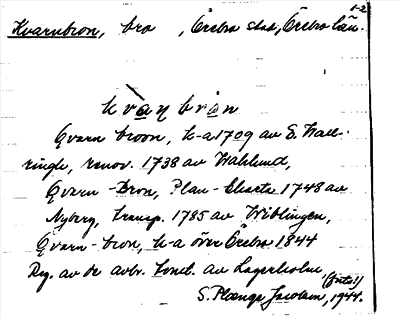 1-2
Kvarnbron, bro , Örebro stad, Örebro län.
kvaṇbrón
Qvarn broon, k-a 1709 av E. Wall-
ringh, renov. 1738 av Wahlund,
Qvarn-Bron, Plan-Charta 1748 av
Nyberg, transp. 1785 av Wiblingen,
Qvarn-bron, k-a över Örebro 1844
Reg. av de avbr. Toml. av Lagerholm
(Intet!)
S. Plænge Jacobson, 1944.